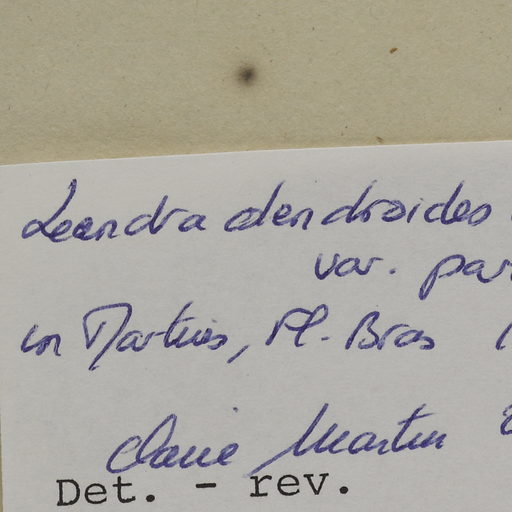 Leandra dendroides
var. par
in Martius, Fl. Bras
Claire Martin
Det. - rev.